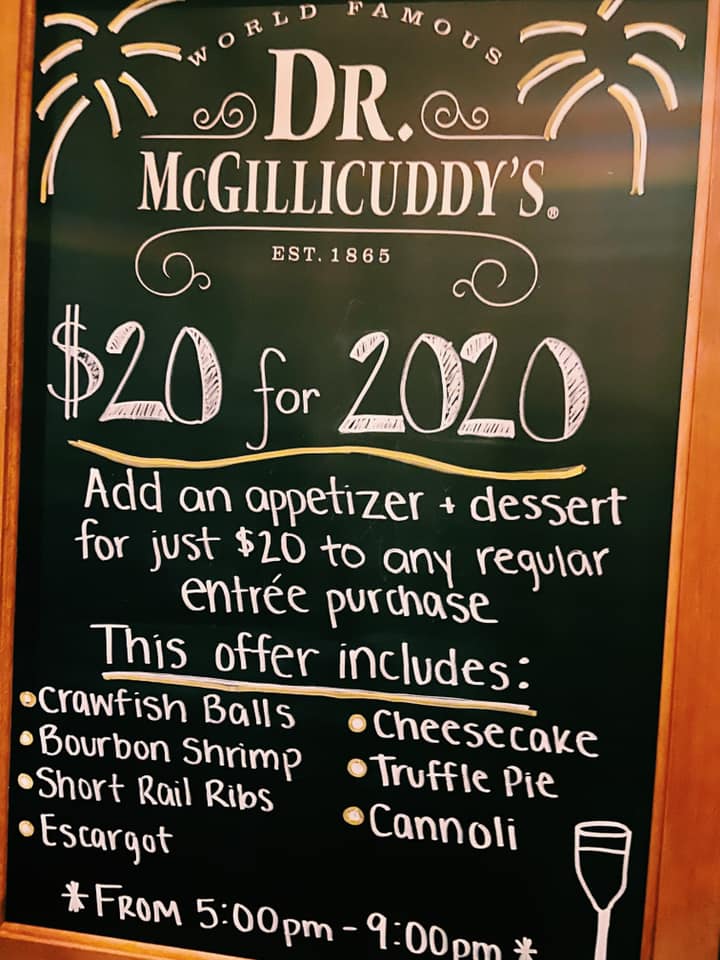 WORLD FAMOUS
DR.
McGILLICUDDY'S®
EST. 1865
$20 for 2020
Add an appetizer + dessert
for just $20 to any regular
entrée purchase
This offer includes:
•Crawfish Balls
•Bourbon Shrimp
•Short Rail Ribs
•Escargot
•Cheesecake
•Truffle Pie
•Cannoli
*FROM 5:00pm - 9:00pm*